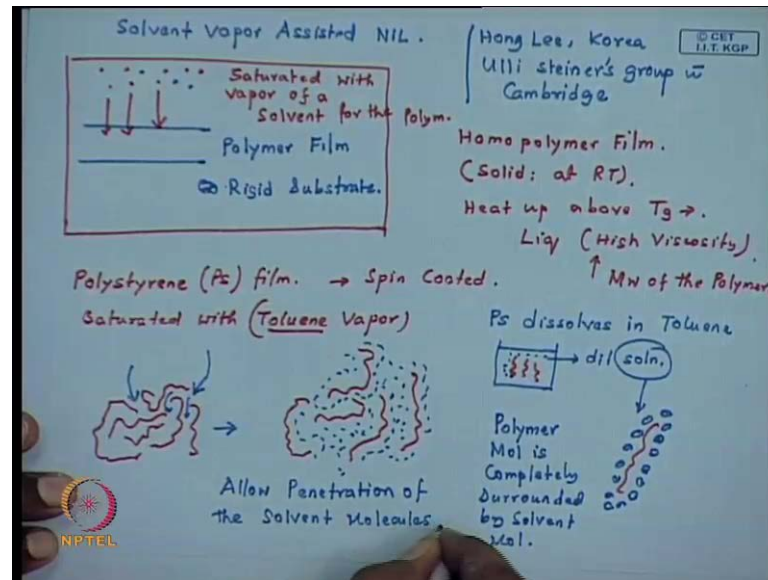 Solvent Vapor Assisted NIL.
Hong Lee, Korea
Ulli steiner's group w
Cambridge
© CET
I.I.T. KGP
Saturated with
vapor of a
Solvent for tht Polym.
Polymer Film
Rigid Substrate.
Homopolymer Film.
(Solid: at RT).
Heat up above Tg →.
Liq (High Viscosity).
↑ Mw of the Polymer
Polystyrene (Ps) film. → Spin Coated.
Saturated with (Toluene Vapor)
Ps dissolves in Toluene
→ dil soln.
Polymer
Mol is
Completely
Surrounded
by Solvent
Mol.
Allow Penetration of
the Solvent Molecules
NPTEL